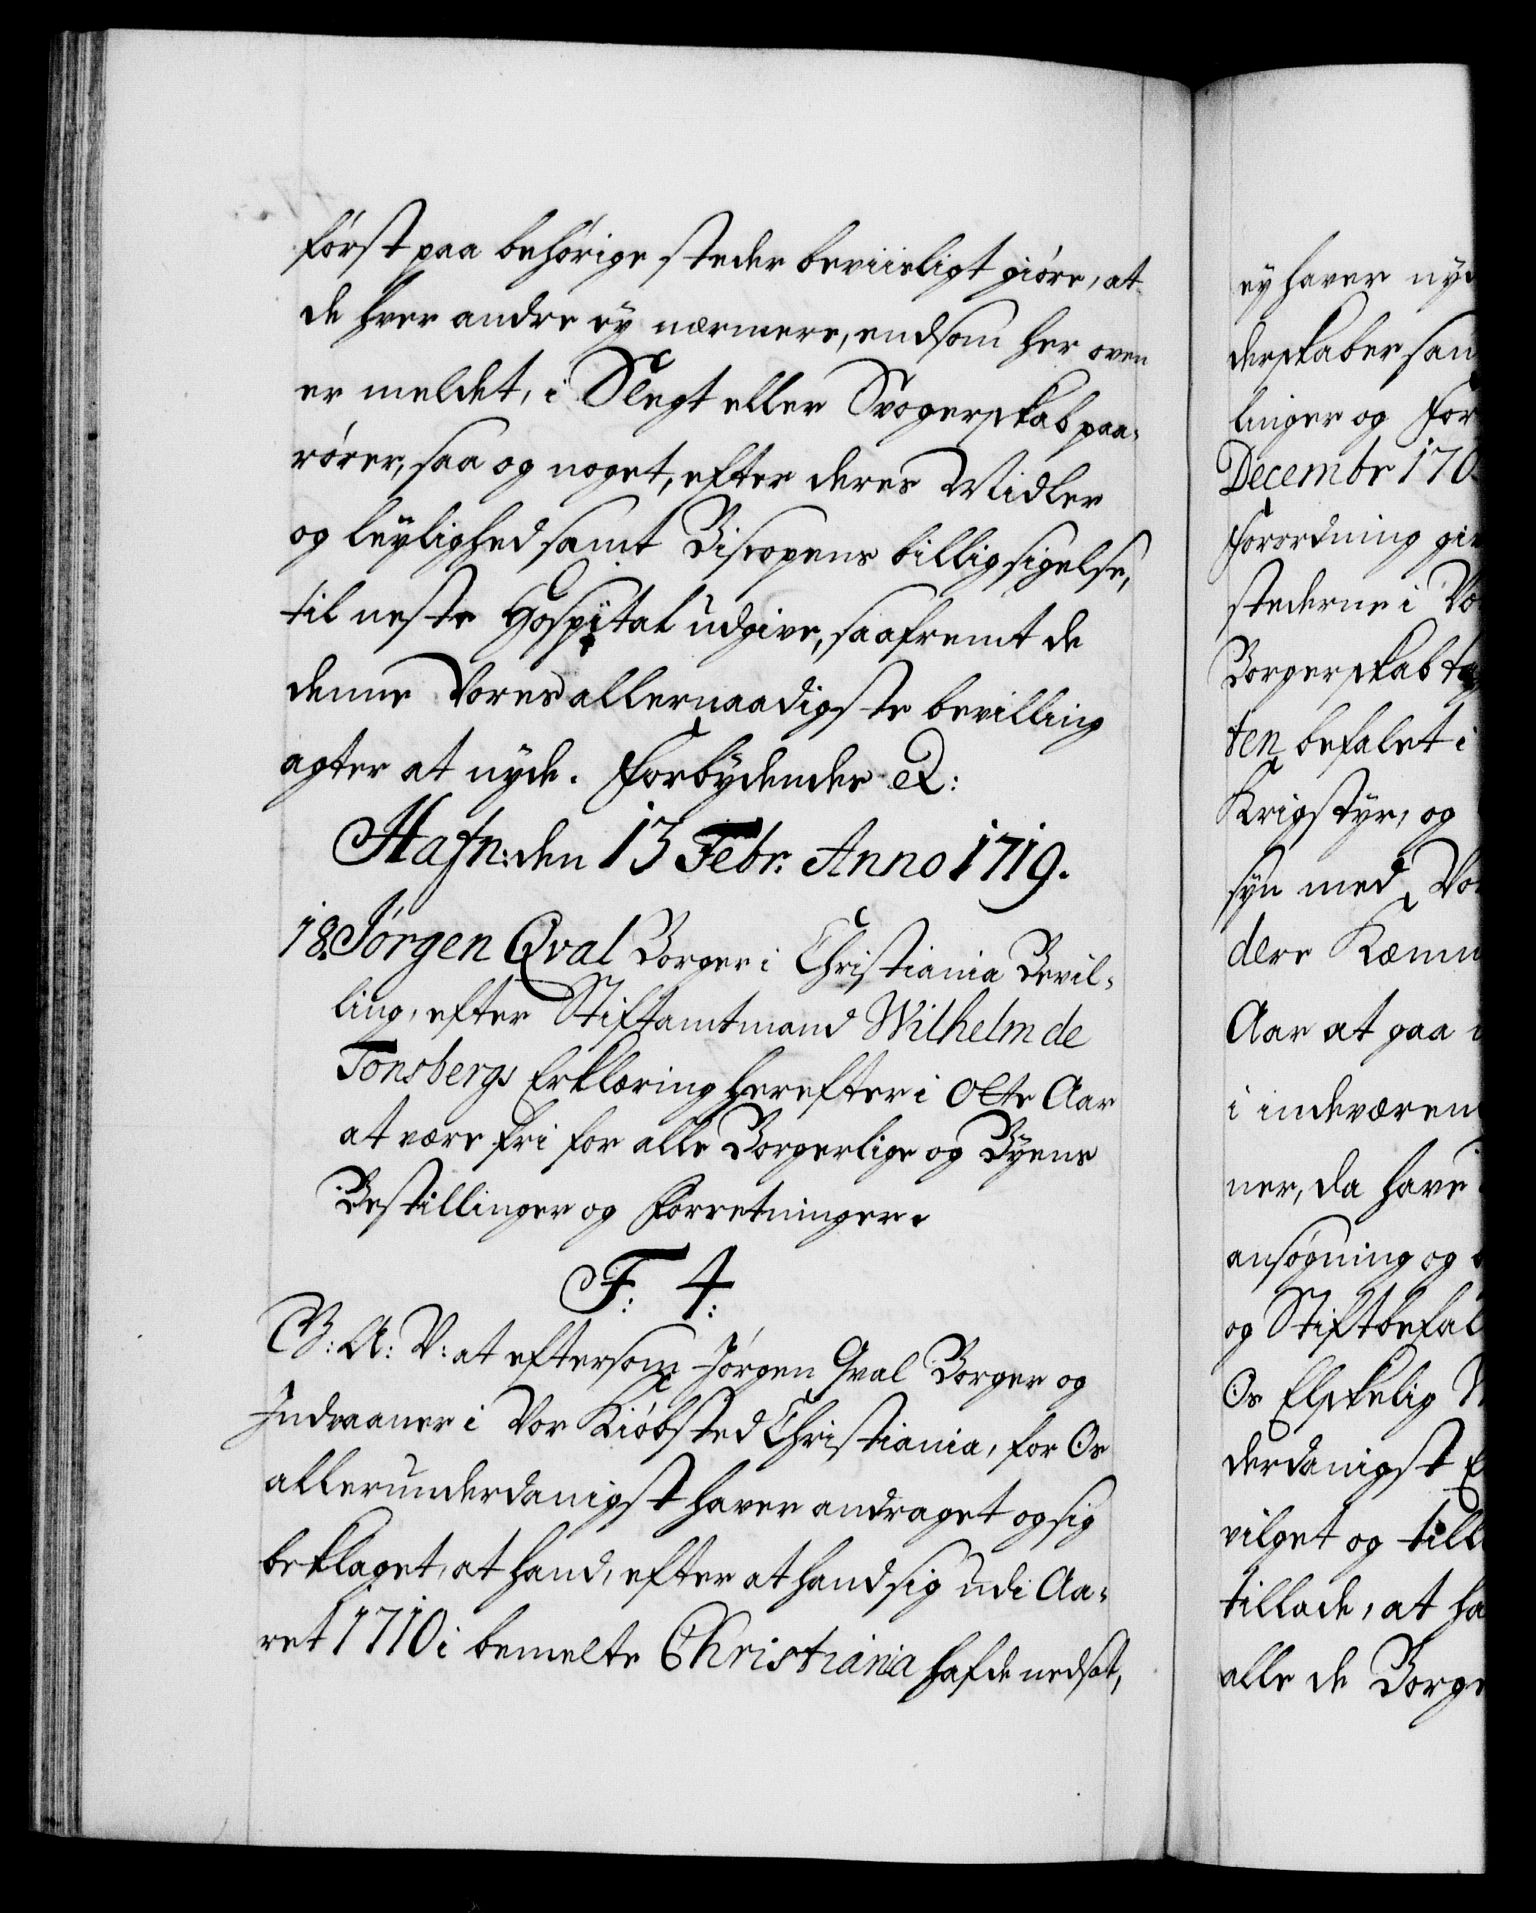 først paa behörige steder beviisligt giöre, at
de hver andre ey nærmere, end som her oven
er meldet, i Slegt eller Svogerskab paa-
rörer, saa og noget, efter deres Midler
og leylighed samt Biscopens billig sigelse,
til neste Hospital udgive, saafremt de
denne Vores allernaadigste bevilling
agter at nyde. Forbydendes &:
Hafn: den 13 Febr: Anno 1719.
18. Jørgen Qval Borger i Christiania Bevil-
ling, efter Stiftamtmand Wilhelm de
Tonsbergs Erklæring herefter i Otte Aar
at være fri for alle Borgerlige og Byens
Bestillinger og Forretninger.
F: 4:
G: A: V: at eftersom Jörgen Qval Borger og
Indvaaner i Vor Kiöbsted Christiania, for Os
allerunderdanigst haver andraget og sig
beklaget, at hand, efter at hand sig udi Aa-
ret 1710 i bemelte Christiania hafde nedsat,
ey haver
derskaber
linger og For
Decembr 170
Forordning
stederne i
Borgerskab
ten befalet i
Krigstyr, og
syn med
dere
Aar at gaa
i indeværen
ner, da have
ansögning og
og Stiftbefal
Os Elskelig
derdanigst
vilget og till
tillade, at ha
alle de Borge